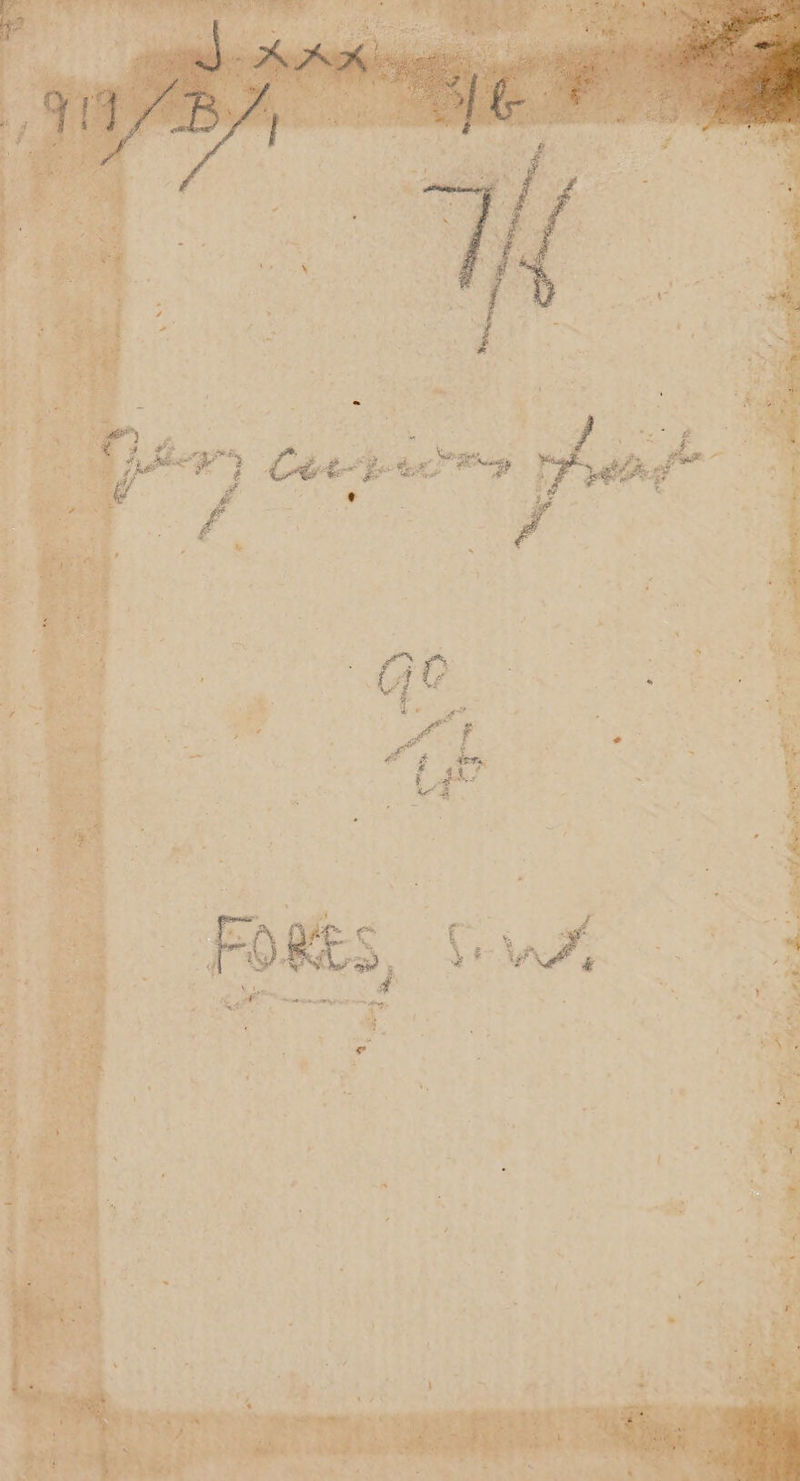 J xxx
919/B/1 3/6
7/6
Very curious front
90
FORES, S. W.